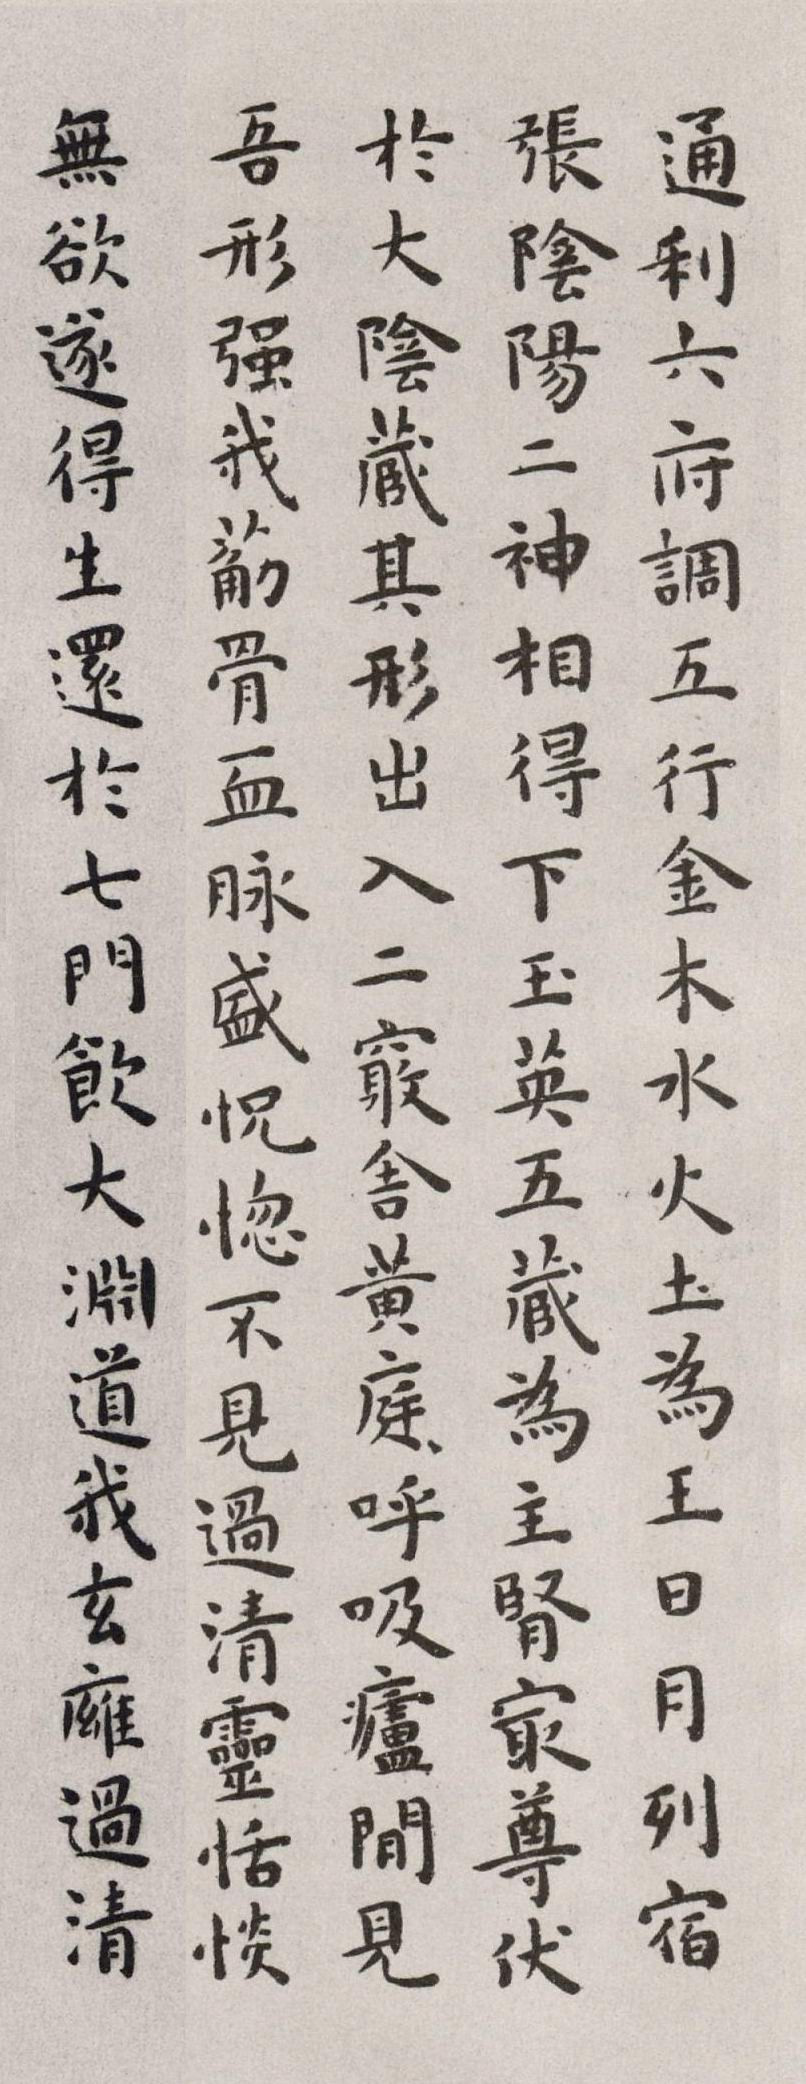 通利六府調五行金木水火土為王日月列宿
張陰陽二神相得下玉英五藏為主腎冣尊伏
於大陰藏其形出入二竅舍黃庭呼吸廬閒見
吾形强我筋骨血脉盛怳惚不見過清靈恬惔
無欲遂得生還於七門飲大淵道我玄廱過清